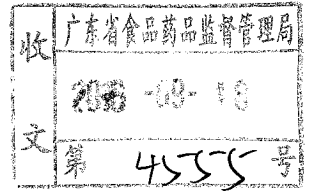 收文
广东省食品药品监督管理局
第 4555 号